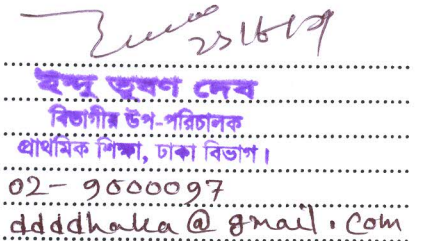 ২১/৬/১৭
ইন্দু ভূষণ দেব
বিভাগীয় উপ-পরিচালক
প্রাথমিক শিক্ষা, ঢাকা বিভাগ।
02- 9000097
ddddhaka@gmail.com